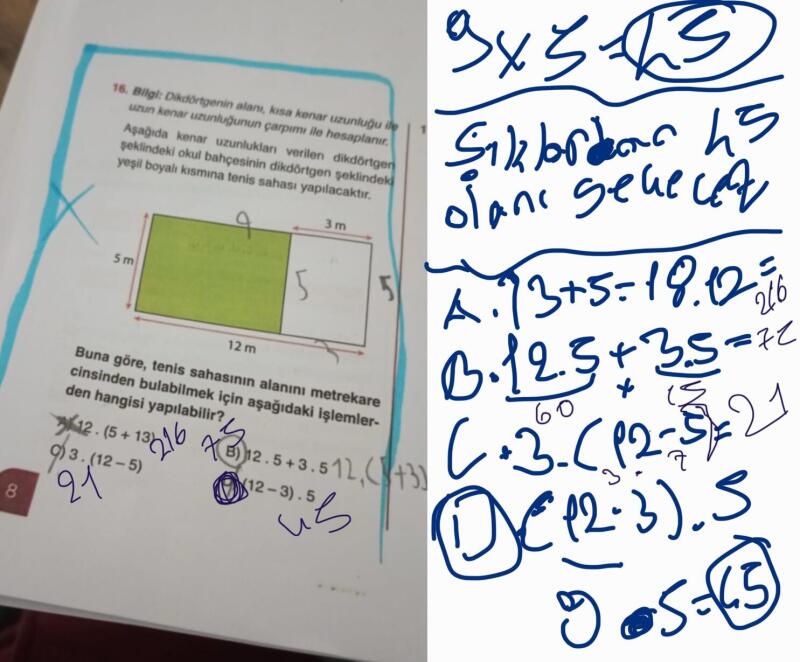 16. Bilgi: Dikdörtgenin alanı, kısa kenar uzunluğu ile
uzun kenar uzunluğunun çarpımı ile hesaplanır.
Aşağıda kenar uzunlukları verilen dikdörtgen
şeklindeki okul bahçesinin dikdörtgen şeklindeki
yeşil boyalı kısmına tenis sahası yapılacaktır.
9
3 m
5 m
5
5
12 m
Buna göre, tenis sahasının alanını metrekare
cinsinden bulabilmek için aşağıdaki işlemler-
den hangisi yapılabilir?
A) 12 . (5 + 13) 216
75 B) 12 . 5 + 3 . 5 12.(5+3)
C) 3 . (12 – 5)
21
D) (12 – 3) . 5
45
8
1
9 x 5 = 45
Şıklardan 45
olanı
A. 13+5=18.12=
216
B. 12.5 + 3.5 = 72
60 + 15
C. 3.(12-5)=21
3 . 7
D (12-3).5
9 . 5=45